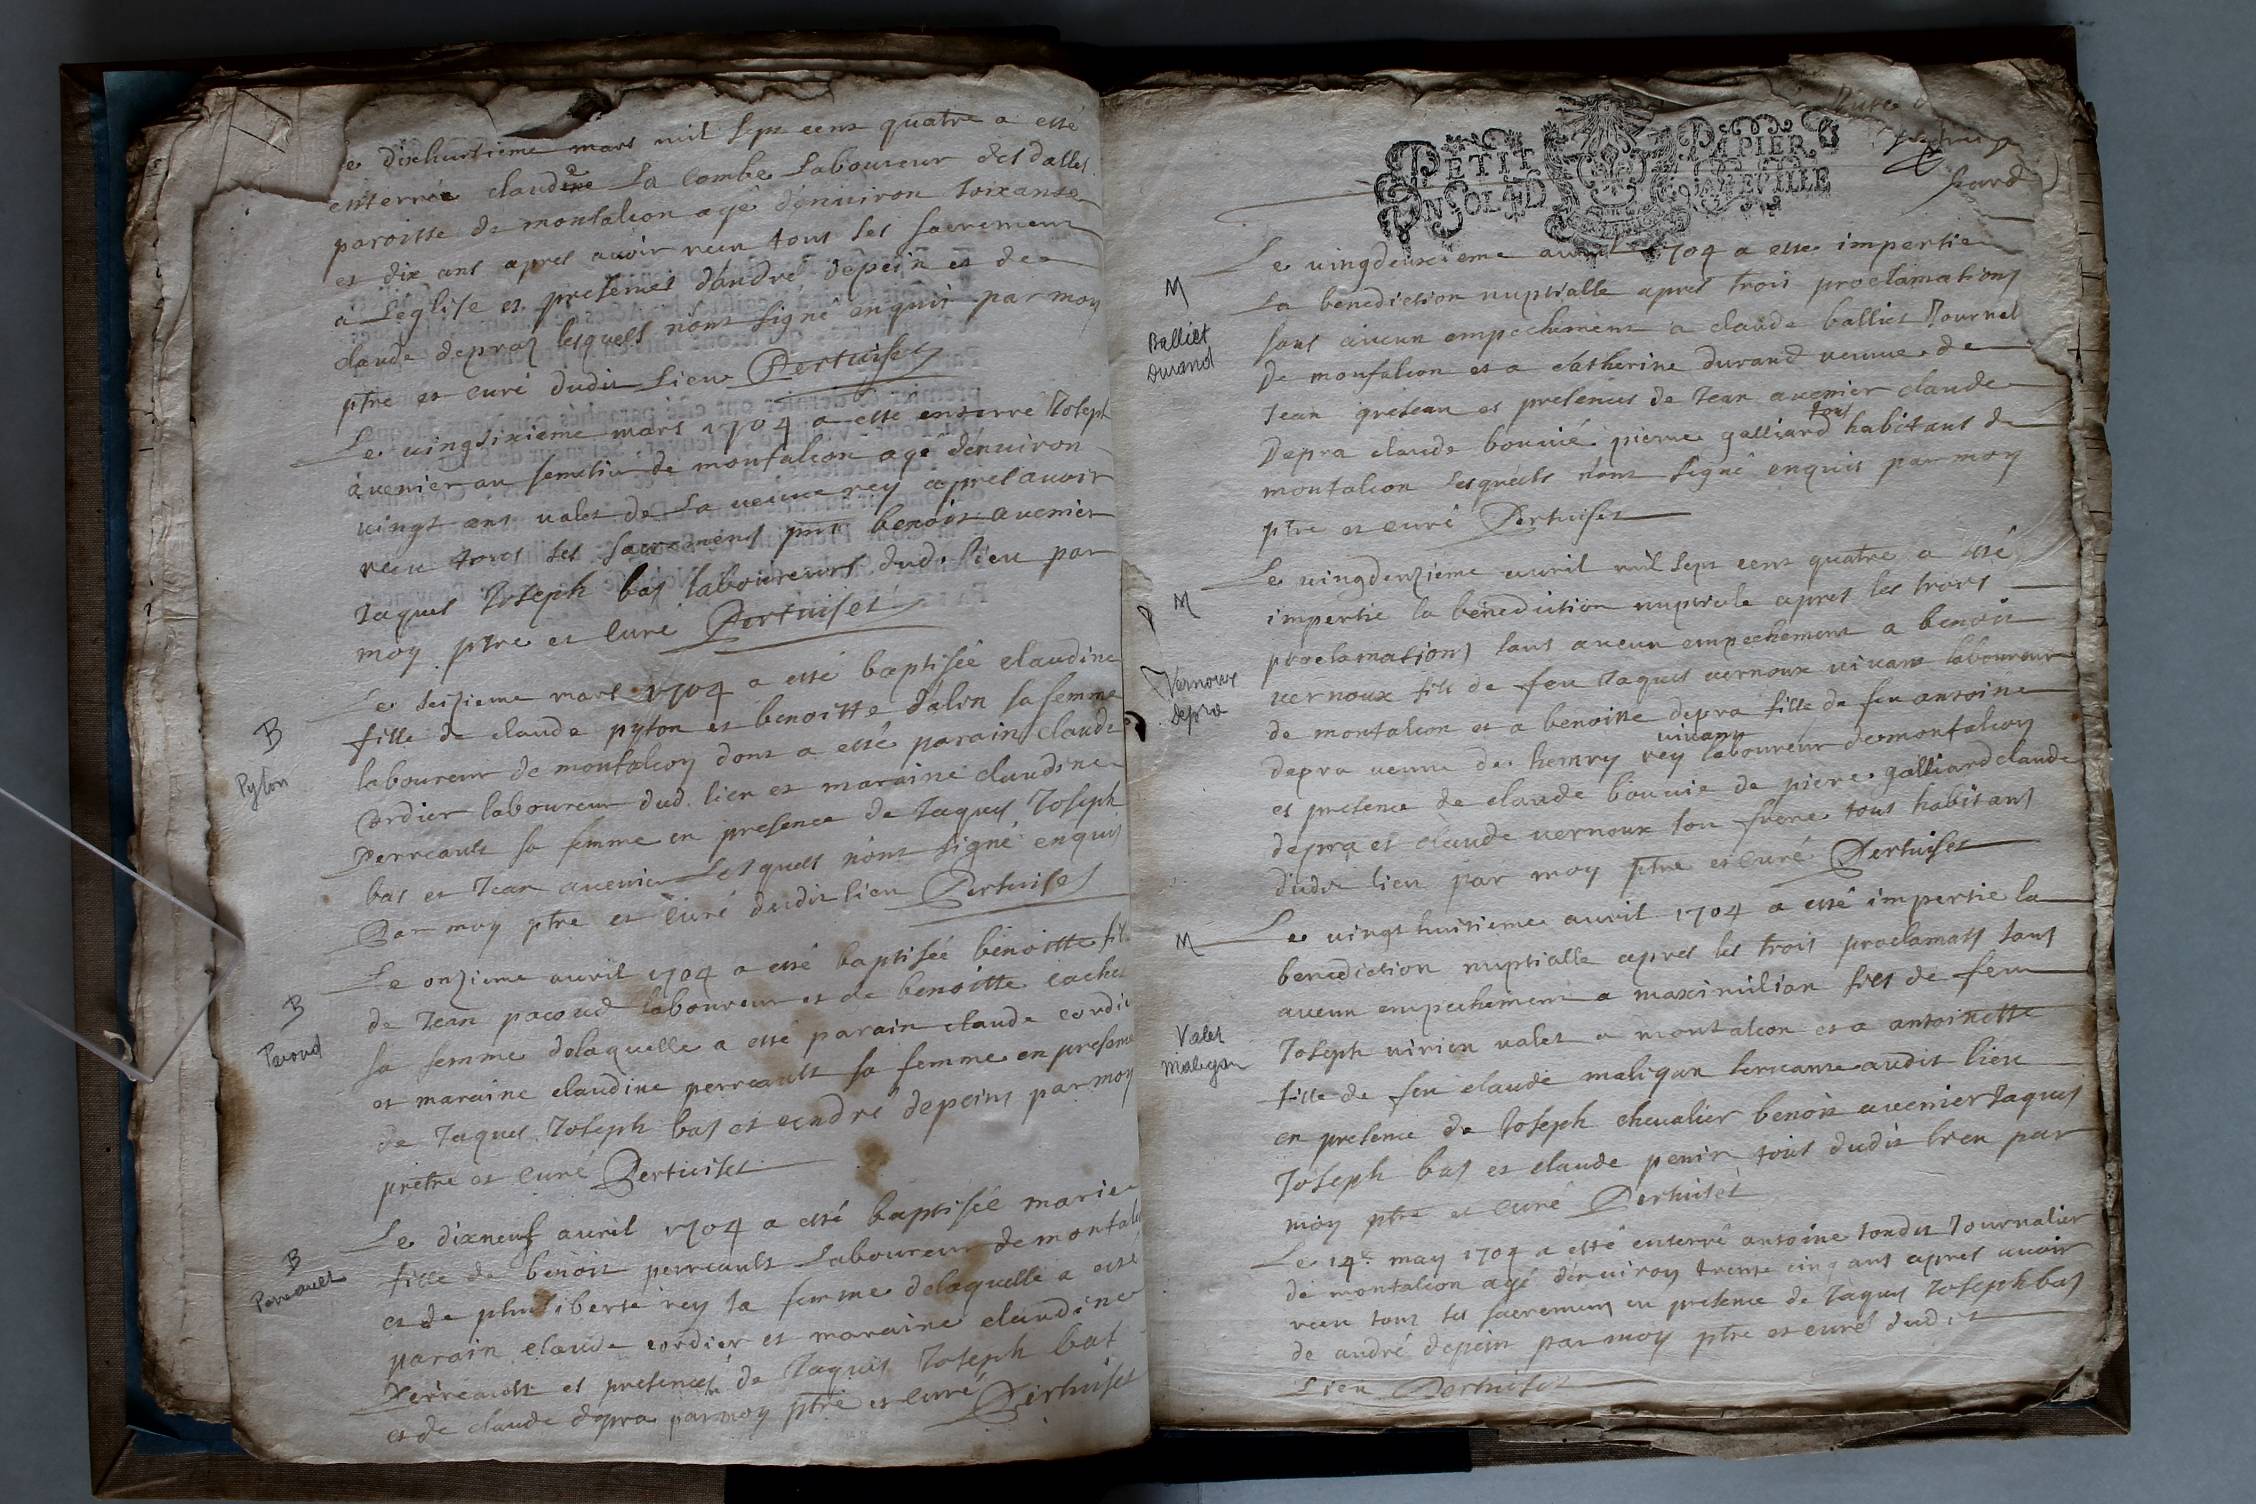 Le dixhuitieme mars mil sept cent quatre a esté
enterrée claudine La combe Laboureur des dalles
paroisse de montalcon agé d'enuiron soixante
et dix ans apres auoir receu tous les sacremens
a L'eglise et presences d'andré depein et de
claude depraz lesquels n'ont signé enquis par moy
ptre et curé dudit Lieu Pertuiset
Le uingtsixieme mars 1704 a esté enterré Joseph
auenier au de montalcon agé d'enuiron
uingt ans ualet de La ueuue rey apres auoir
receu tous les sacremens benoit auenier
Jaques Joseph bas laboureurs dud. Lieu par
moy ptre et Curé Pertuiset
B
Pylon
Le seizieme mars 1704 a esté baptisée claudine
fille de claude pyton et benoitte dalin sa femme
laboureur de montalcon dont a esté parain claude
Cordier laboureur dud. lieu et maraine claudine
Perreault sa femme en presence de Jaques Joseph
bas et Jean auenier Lesquels n'ont signé enquis
Par moy ptre et Curé dudit lieu Pertuiset
B
Pacoud
Le onzieme auril 1704 a esté baptisée benoitte fil
de Jean pacoud laboureur et de benoitte cachet
sa femme delaquelle a esté parain claude cordie
et maraine claudine perreault sa femme en presence
de Jaques Joseph bas et andré depeins par moy
pretre et Curé Pertuiset
B
Perreault
Le dixneuf auril 1704 a esté baptisée marie
fille de benoit perreault Laboureur de montal
et de philiberte rey sa femme delaquelle a esté
parain claude cordier et maraine claudine
Perreault et presences de Jaques Joseph bas
et de claude depra par moy ptre et curé Pertuiset
PETIT PAPIER
UN SOL 4 D
Le uingdeuxieme auril 1704 a esté impertie
La benediction nuptialle apres trois proclamations
sans aucun empechement a claude balliet Journal
De montalcon et a Catherine durand ueuue de
Jean greseau et presences de Jean auenier claude
Depra claude bouuié pierre galliard tous habitans de
montalcon Lesquels n'ont signé enquis par moy
ptre et curé Pertuiset
M
Balliet
Durand
Le uingdeuzieme auril mil sept cent quatre a esté
impertie la benediction nuptiale apres les trois
proclamations sans aucun empechement a benoit
uernoux fils de feu Jaques uernoux uiuant laboureur
de montalcon et a benoitte depra fille de feu antoine
depra ueuue de henry rey uiuant laboureur de montalcon
et presence de claude bouuie de pierre galliard claude
depra et claude uernoux son frere tous habitans
dudit lieu par moy ptre et curé Pertuiset
M
Vernoux
Depra
Le uingt huitieme auril 1704 a esté impertie la
benediction nuptialle apres les trois proclamats sans
aucun empechement a maximilian fils de feu
Joseph uirien ualet a montalcon et a antoinette
fille de feu claude maligan seruante audit lieu
en presence de Joseph cheualier benoit auenier Jaques
Joseph bas et claude penin tous dudit lieu par
moy ptre et curé Pertuiset
M
Valet
Maligan
Le 14e may 1704 a esté enterré antoine tondut Journalier
de montalcon agé d'enuiron trente cinq ans apres auoir
receu tous les sacremens en presence de Jaques Joseph bas
de andré depein par moy ptre et curé dudit
Lieu Pertuiset